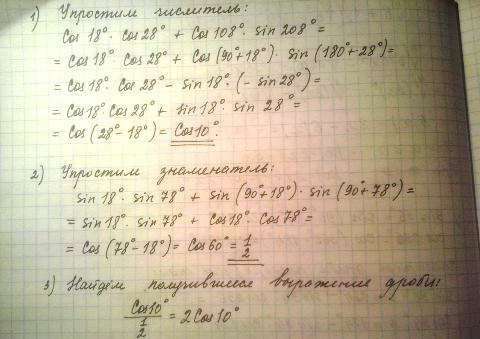 1) Упростим числитель:
Cos 18° · cos 28° + Cos 108° · sin 208° =
= Cos 18° Cos 28° + Cos (90°+18°) · sin (180°+28°) =
= Cos 18° · Cos 28° - sin 18° · (- sin 28°) =
= Cos 18° Cos 28° + sin 18° · sin 28° =
= Cos (28° - 18°) = Cos 10°.
2) Упростим знаменатель:
sin 18° · sin 78° + sin (90°+18°) · sin (90°+78°) =
= sin 18° · sin 78° + Cos 18° · Cos 78° =
= Cos (78° - 18°) = Cos 60° = 1/2
3) Найдём получившееся выражение дроби:
Cos 10° / 1/2 = 2 Cos 10°